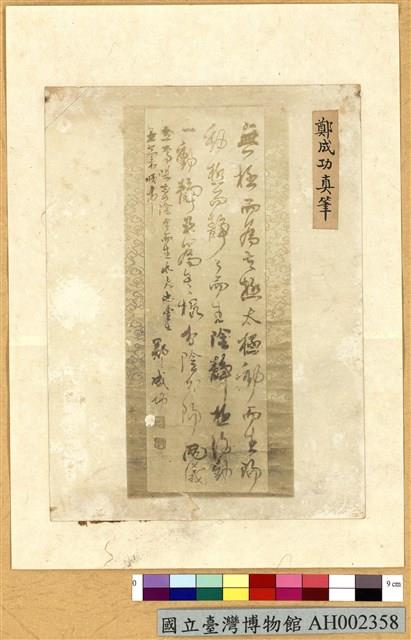 鄭成功真筆
無極而為太極太極動而生陽
動極而靜々而生陰靜極復動
一動靜互為其根分陰分陽兩儀
鄭成功
0
9 cm
國立臺灣博物館 AH002358